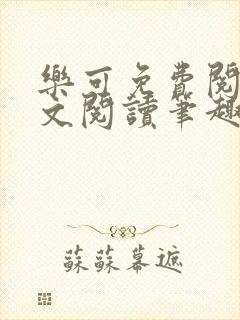 樂可免費閱
文閱讀筆趣
蘇蘇幕遮